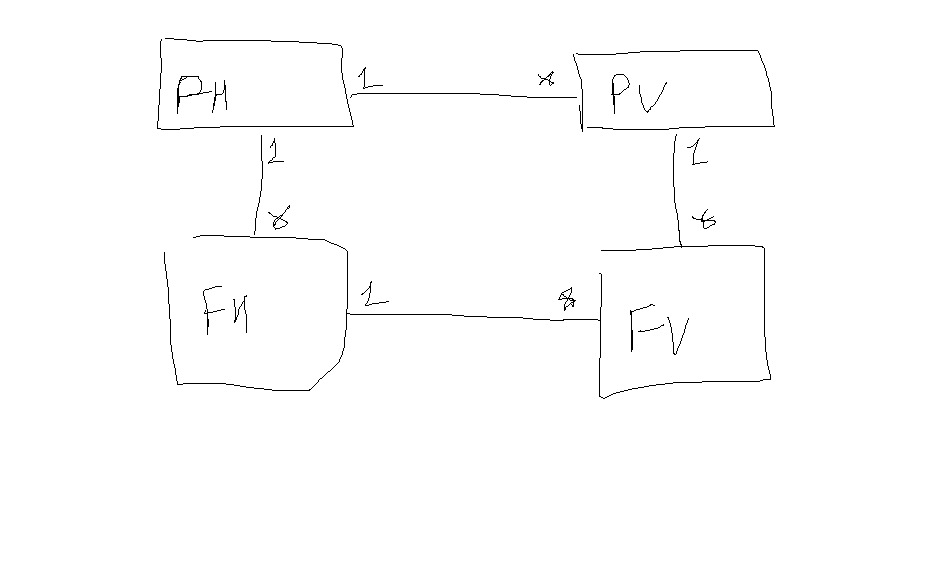 PH 1 * PV
1 1
* *
FH 1 * FV